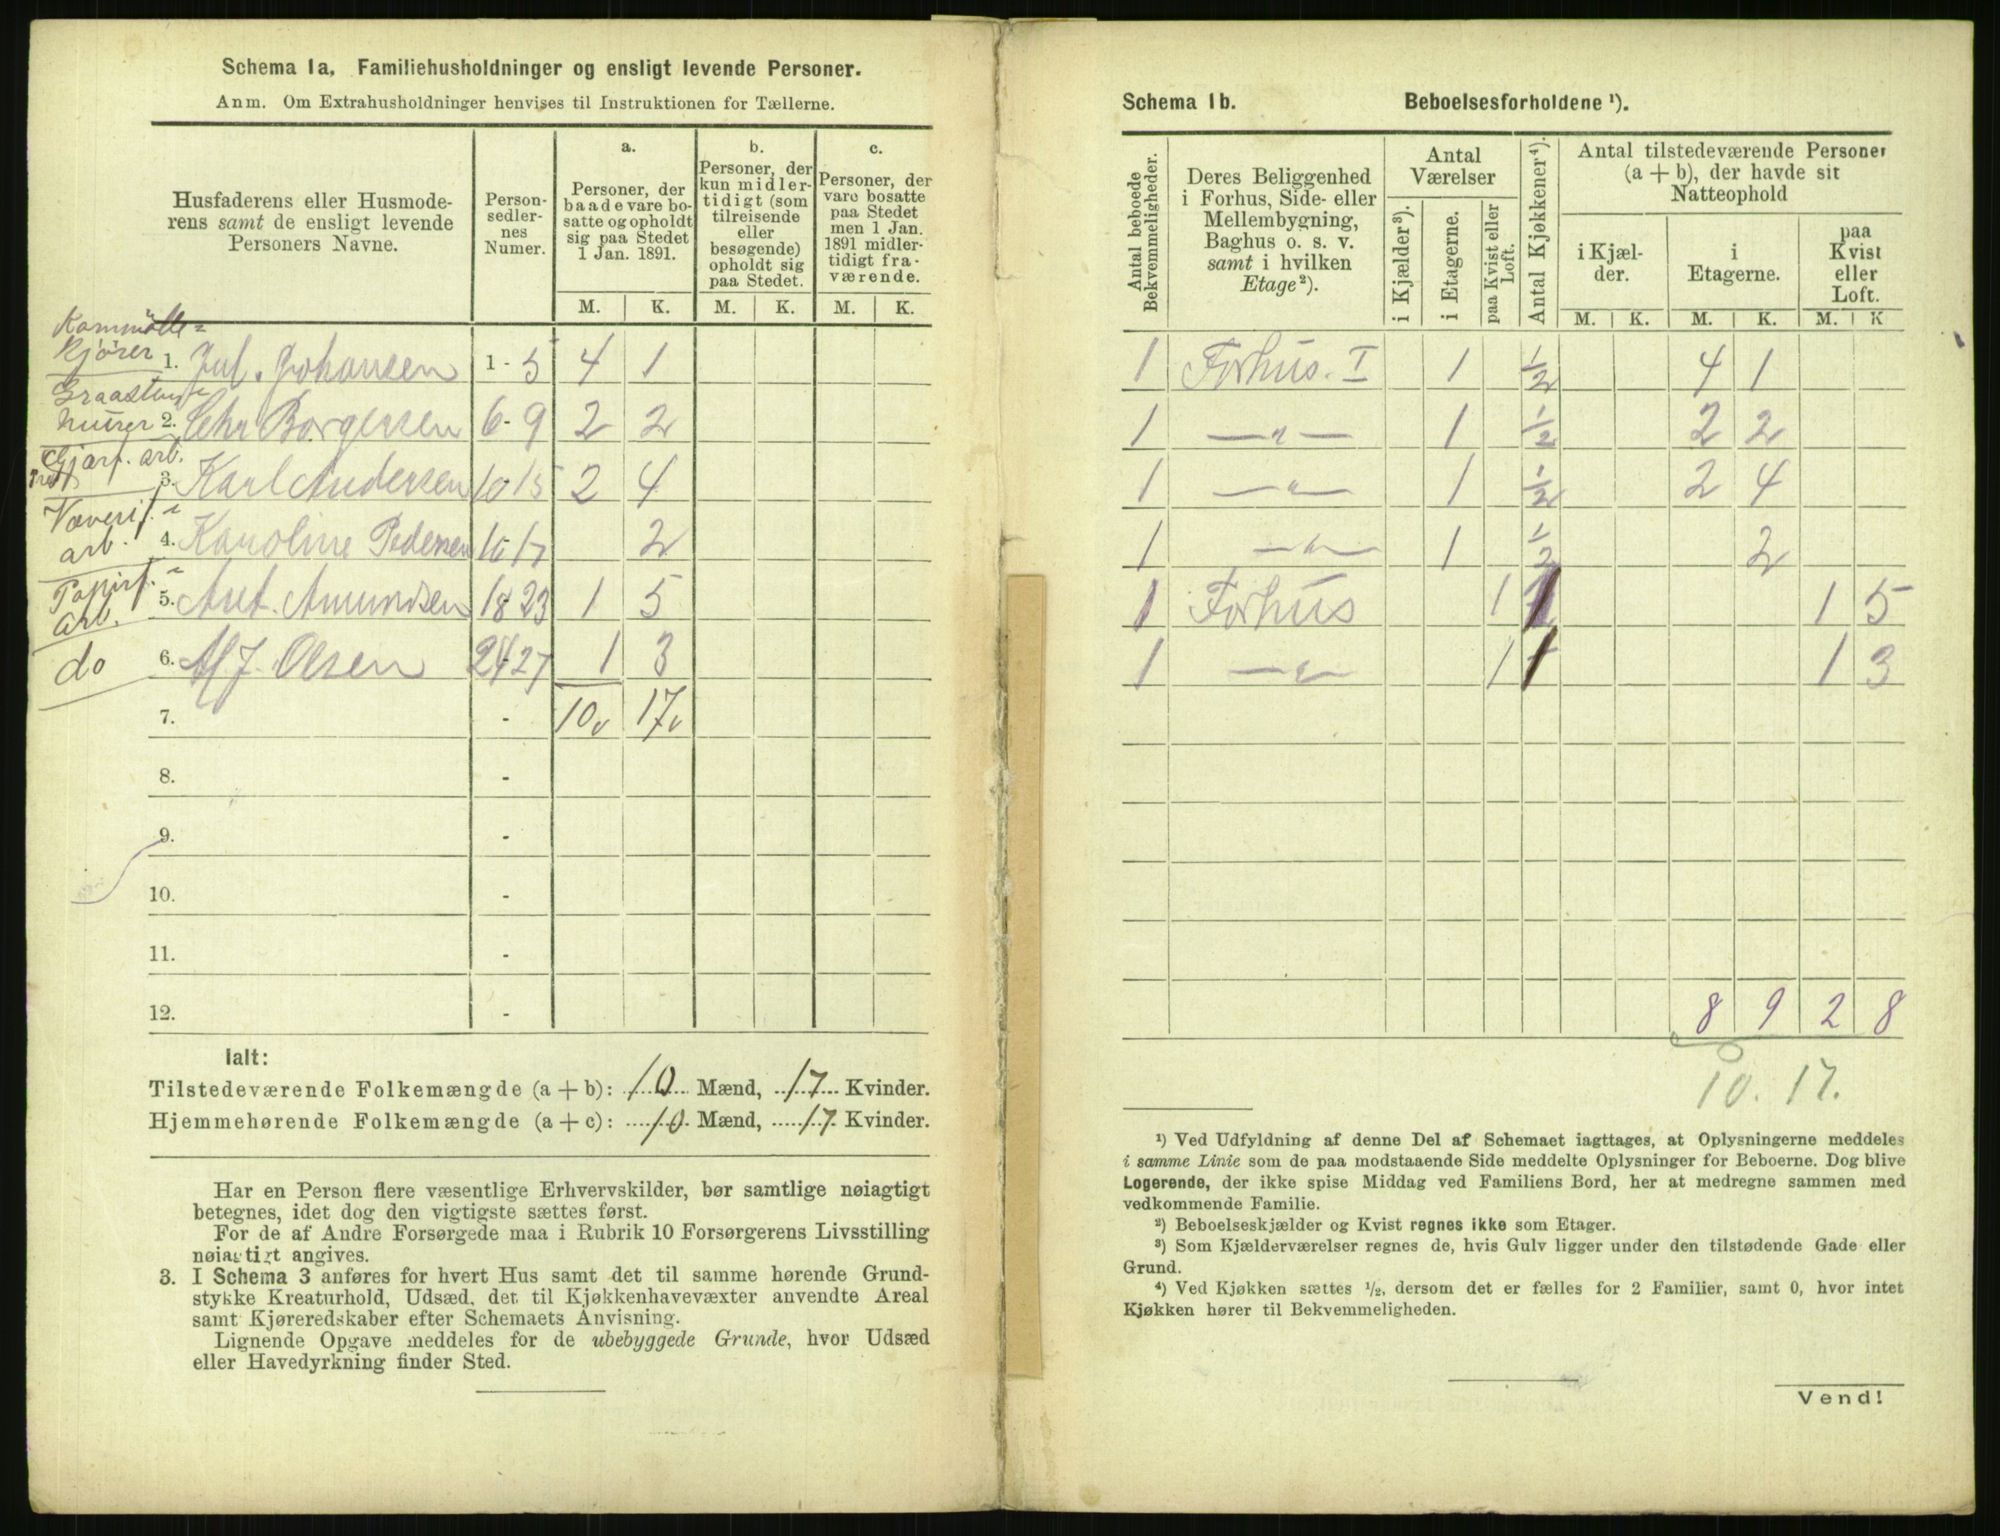 Schema 1a. Familiehusholdninger og ensligt levende Personer.
Anm. Om Extrahusholdninger henvises til Instruktionen for Tællerne.
Husfaderens eller Husmode-
rens samt de ensligt levende
Personers Navne.
Person-
sedler-
nes
Numer.
a.
Personer, der
baade vare bo-
satte og opholdt
sig paa Stedet
1 Jan. 1891.
b.
Personer, der
kun midler-
tidigt (som
tilreisende
eller
besøgende)
opholdt sig
paa Stedet.
c.
Personer, der
vare bosatte
paa Stedet
men 1 Jan.
1891 midler-
tidigt fra-
værende.
M. K. M. K. M. K.
Kornmølle-
kjører
1. Jul. Johansen 1-5 4 1
2. Chr Borgersen 6-9 2 2
arb.
3. Karl Andersen 10 15 2 4
Væverif.
arb.
4. Karoline Pedersen 16 17 2
Papirf.
Arb.
5. Ant. Amundsen 18 23 1 5
do
6. Olsen 24-27 1 3
7. - 10 17
8. -
9. -
10. -
11. -
12. -
Ialt:
Tilstedeværende Folkemængde (a + b): 10 Mænd, 17 Kvinder.
Hjemmehørende Folkemængde (a + c): 10 Mænd, 17 Kvinder.
Har en Person flere væsentlige Erhvervskilder, bør samtlige nøiagtigt
betegnes, idet dog den vigtigste sættes først.
For de af Andre Forsørgede maa i Rubrik 10 Forsørgerens Livsstilling
nøiagtigt angives.
3. I Schema 3 anføres for hvert Hus samt det til samme hørende Grund-
stykke Kreaturhold, Udsæd, det til Kjøkkenhavevæxter anvendte Areal
samt Kjøreredskaber efter Schemaets Anvisning.
Lignende Opgave meddeles for de ubebyggede Grunde, hvor Udsæd
eller Havedyrkning finder Sted.
Schema 1b. Beboelsesforholdene ¹).
Antal beboede
Bekvemmeligheder.
Deres Beliggenhed
i Forhus, Side- eller
Mellembygning,
Baghus o. s. v.
samt i hvilken
Etage ²).
Antal
Værelser
i Kjælder ³).
i Etagerne.
paa Kvist eller
Loft.
Antal Kjøkkener ⁴).
Antal tilstedeværende Personer
(a + b), der havde sit
Natteophold
i Kjæl-
der.
i
Etagerne.
paa
Kvist
eller
Loft.
M. K. M. K. M. K
1 Forhus. I 1 ½ 4 1
1 —„— 1 ½ 2 2
1 —„— 1 ½ 2 4
1 —„— 1 ½ 2
1 Forhus 1 1 1 5
1 —„— 1 1 1 3
8 9 2 8
10. 17.
¹) Ved Udfyldning af denne Del af Schemaet iagttages, at Oplysningerne meddeles
i samme Linie som de paa modstaaende Side meddelte Oplysninger for Beboerne. Dog blive
Logerende, der ikke spise Middag ved Familiens Bord, her at medregne sammen med
vedkommende Familie.
²) Beboelseskjælder og Kvist regnes ikke som Etager.
³) Som Kjælderværelser regnes de, hvis Gulv ligger under den tilstødende Gade eller
Grund.
⁴) Ved Kjøkken sættes ½, dersom det er fælles for 2 Familier, samt 0, hvor intet
Kjøkken hører til Bekvemmeligheden.
Vend!